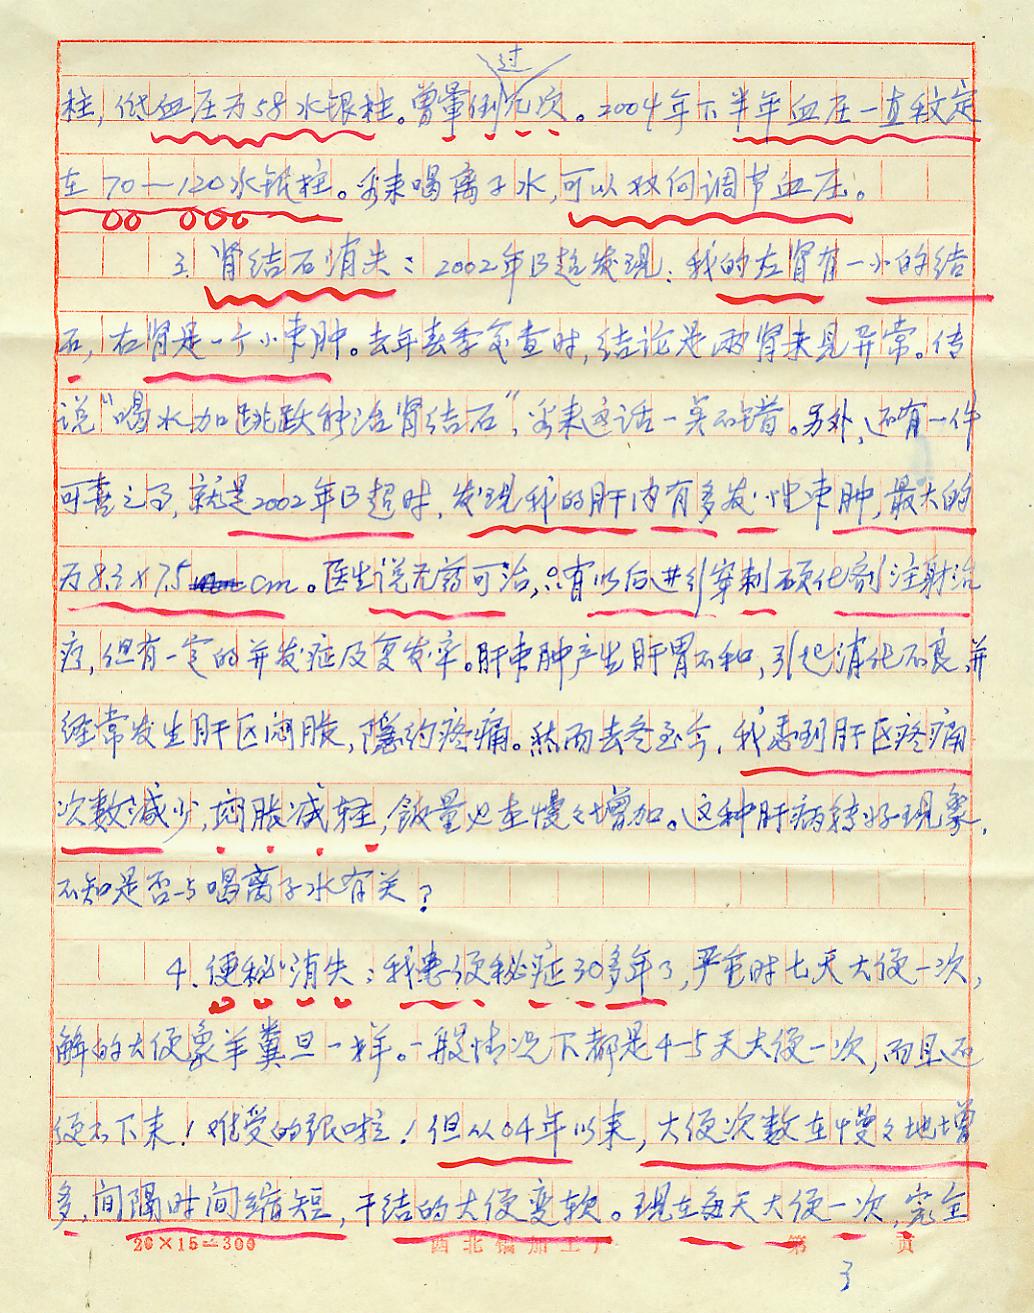 过
柱,低血压为58水银柱。曾晕倒几次。2004年下半年血压一直稳定
在70—120水银柱。看来喝离子水,可以双向调节血压。
3.肾结石消失:2002年B超发现:我的左肾有一小的结
石,右肾是一个小束肿。去年春季复查时,结论是两肾未见异常。传
说“喝水加跳跃能治肾结石”,看来这话一点不错。另外,还有一件
可喜之事,就是2002年B超时,发现我的肝内有多发性束肿,最大的
为8.3×7.5 cm。医生说无药可治,只有以后进行穿刺硬化剂注射治
疗,但有一定的并发症及复发率。肝束肿产生肝胃不和,引起消化不良,并
经常发生肝区闷胀,隐约疼痛。然而去冬至今,我感到肝区疼痛
次数减少,闷胀减轻,饭量也在慢々增加。这种肝病转好现象,
不知是否与喝离子水有关?
4.便秘消失:我患便秘症30多年了,严重时七天大便一次,
解的大便象羊粪旦一样。一般情况下都是4-5天大便一次,而且还
便不下来!难受的很啦!但从04年以来,大便次数在慢々地增
多,间隔时间缩短,干结的大便变软。现在每天大便一次,完全
20×15=300 西北 加工厂 第 页
3